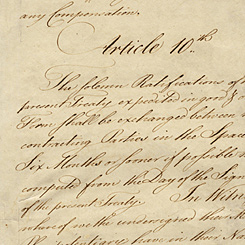 any Compensation.
Article 10th
The solemn Ratifications of
present Treaty expedited in good &
Form shall be exchanged between
contracting Parties in the Spa
Six Months or sooner if possible
computed from the Day of the Sig
of the present Treaty. In Witn
we the undersigned
have in their N